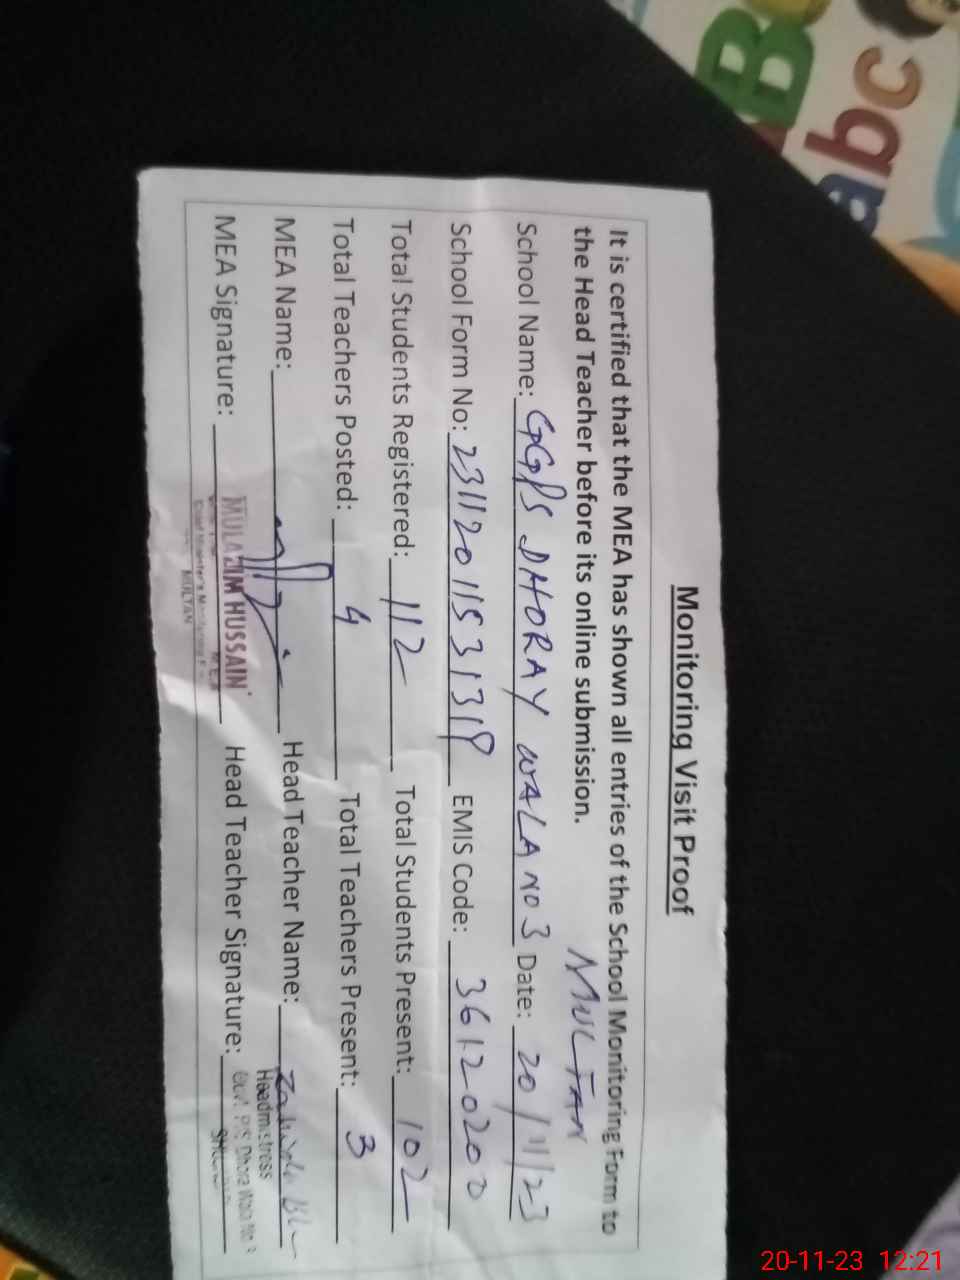 Monitoring Visit Proof
It is certified that the MEA has shown all entries of the School Monitoring Form to
the Head Teacher before its online submission.
MULTAN
School Name: GGPS DHORAY WALA NO 3 Date: 20/11/23
School Form No: EMIS Code: 36120200
Total Students Registered: 112 Total Students Present: 102
Total Teachers Posted: 4 Total Teachers Present: 3
MEA Name: Head Teacher Name:
MEA Signature: MULAZIM HUSSAIN Head Teacher Signature:
M.E.A
MULTAN
Headmistress
Govt. P/S Dhora Wala No 3
B
abc
20-11-23 12:21